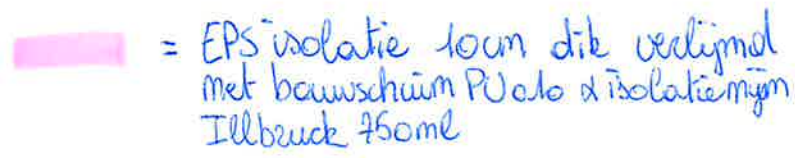 = EPS isolatie 10cm dik verlijmd
met bouwschuim PU010 & isolatiemijm
Illbruck 750ml